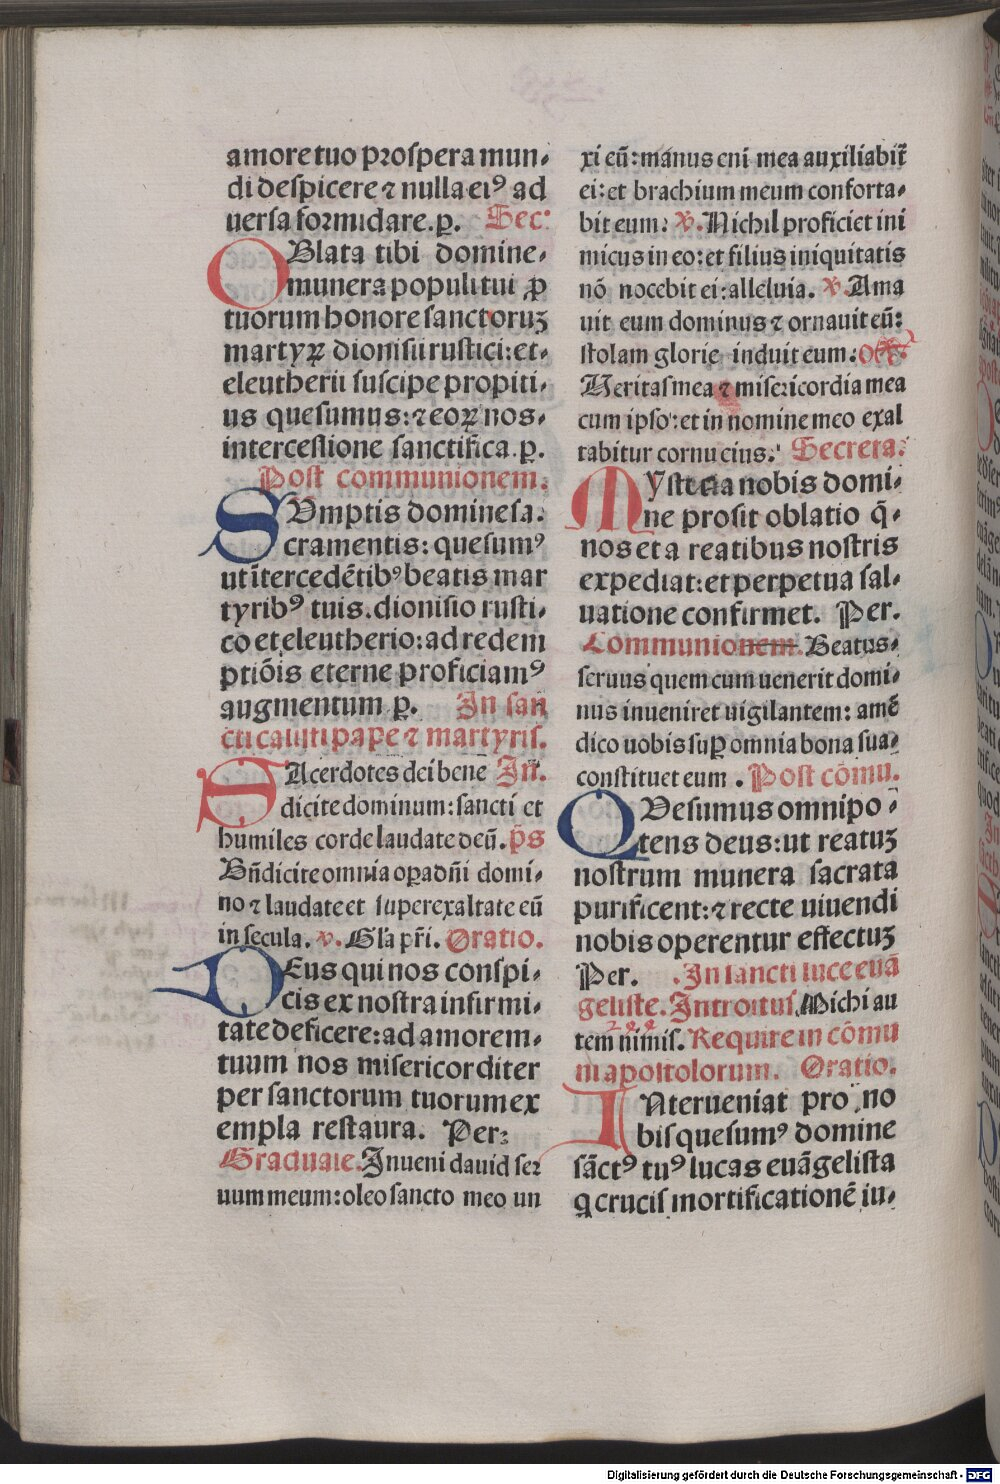 amore tuo prospera mun-
di despicere ⁊ nulla eiꝰ ad
uersa formidare. p̱. Sec:
OBlata tibi domine-
munera populi tui ꝓ
tuorum honore sanctoruꝫ
martyꝝ dionisii rustici: et-
eleutherii suscipe propiti-
us quesumus: ⁊ eoꝝ nos-
intercessione sanctifica. p̱.
Post communionem.
SVmptis domine sa-
cramentis: quesumꝰ
ut ītercedētibꝰ beatis mar
tyribꝰ tuis. dionisio rusti-
co et eleutherio: ad redem
ptiōis eterne proficiamꝰ
augmentum. p̱. In san
cti calisti pape ⁊ martyris.
SAcerdotes dei bene In.
dicite dominum: sancti et
humiles corde laudate deū. p̄s
Bn̄dicite omnia oꝑa dn̄i domi-
no ⁊ laudate et superexaltate eū
in secula. v. Gl'a pr̄i. Oratio.
DEus qui nos conspi-
cis ex nostra infirmi-
tate deficere: ad amorem-
tuum nos misericorditer
per sanctorum tuorum ex
empla restaura. Per:
Graduale. Inueni dauid ser
uum meum: oleo sancto meo un
xi eū: manus eni mea auxiliabit̄
ei: et brachium meum conforta-
bit eum: v. Nichil proficiet ini
micus in eo: et filius iniquitatis
nō nocebit ei: alleluia. v. Ama
uit eum dominus ⁊ ornauit eū:
stolam glorie induit eum. off.
Veritas mea ⁊ misericordia mea
cum ipso: et in nomine meo exal
tabitur cornu eius. Secreta.
MYsteria nobis domi-
ne prosit oblatio q̄-
nos et a reatibus nostris
expediat: et perpetua sal-
uatione confirmet. Per.
Communionem. Beatus-
seruus quem cum uenerit domi-
nus inueniret uigilantem: amē
dico uobis suꝑ omnia bona sua-
constituet eum. Post cōmu.
QVesumus omnipo-
tens deus: ut reatuꝫ
nostrum munera sacrata
purificent: ⁊ recte uiuendi
nobis operentur effectuꝫ
Per. In sancti luce euā
geliste. Introitus, Michi au
tem nimis. Require in cōmu
ni apostolorum. Oratio.
INterueniat pro no
bis quesumꝰ domine
sāctꝰ tuꝰ lucas euāgelista
q crucis mortificationē iu-
Digitalisierung gefördert durch die Deutsche Forschungsgemeinschaft - DFG